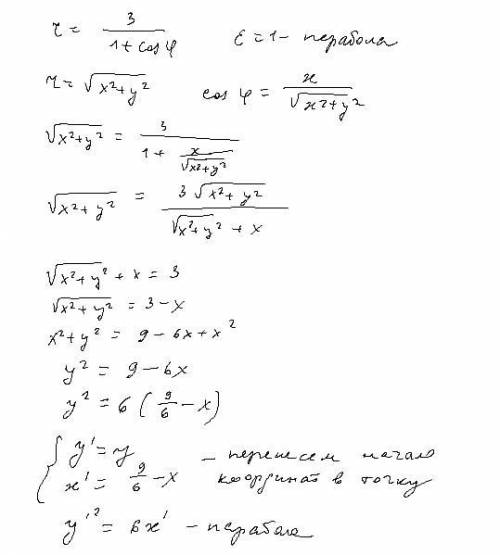 r = 3 / (1 + cos φ)    ε = 1 - парабола
r = √(x² + y²)    cos φ = x / √(x² + y²)
√(x² + y²) = 3 / (1 + x / √(x² + y²))
√(x² + y²) = 3√(x² + y²) / (√(x² + y²) + x)
√(x² + y²) + x = 3
√(x² + y²) = 3 - x
x² + y² = 9 - 6x + x²
y² = 9 - 6x
y² = 6 (9/6 - x)
{ y' = y - перенесем начало
x' = 9/6 - x координат в точку
y'² = 6x' - парабола